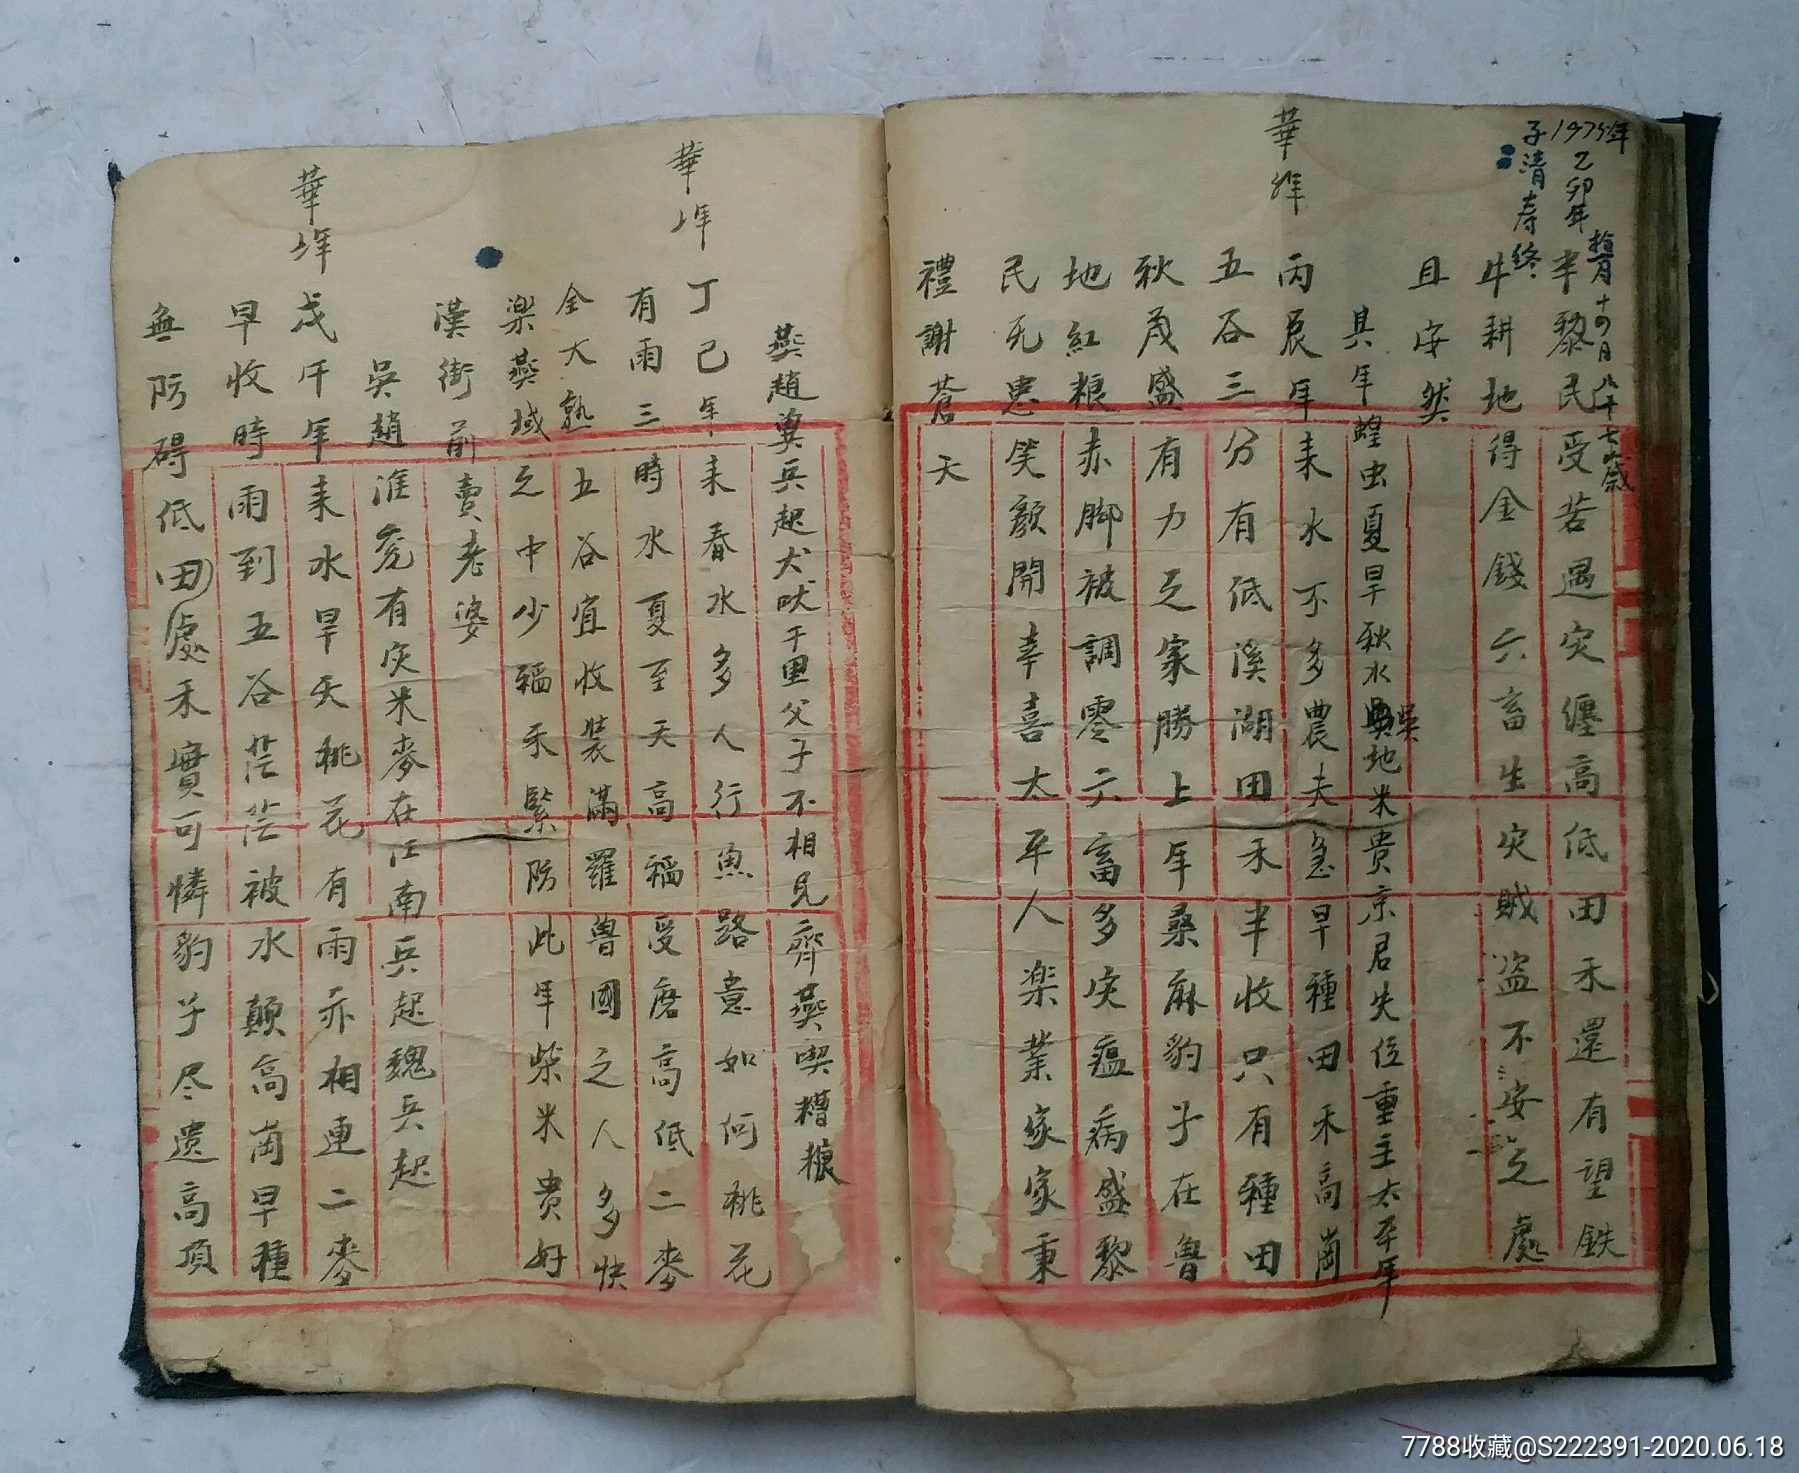 1975年
乙卯年
子清寿終
十四日八十七歲
半黎民受苦遇灾纏高低田禾還有望鉄
牛耕地得金錢六畜生灾賊盗不安之處
且安然
其年蝗虫夏旱秋水吳地米貴京君失位重主太平年
華年
丙辰年耒水不多農夫急早種田禾高崗
五谷三分有低溪湖田禾半收只有種田
秋成盛有力之家勝上年桑麻豹子在魯
地紅粮赤脚被調零六畜多灾瘟病盛黎
民死患笑顏開幸喜太平人楽業家家秉
禮謝蒼天
燕趙冀兵起犬吠千里父子不相見齊燕喫糟糠
華年
丁己年耒春水多人行魚路意如何桃花
有雨三時水夏至天高稲受磨高低二麥
全大熟五谷宜收装滿羅魯國之人多快
楽燕域之中少稲禾緊防此年柴米贵好
漢街前賣老婆
吳趙淮兖有灾米麥在江南兵起魏兵起
華年
戊午年耒水旱天桃花有雨亦相連二麥
早收時雨到五谷茫茫被水顛高崗早種
無防碍低田處禾實可憐豹子尽遺高頂
7788收藏@S222391-2020.06.18